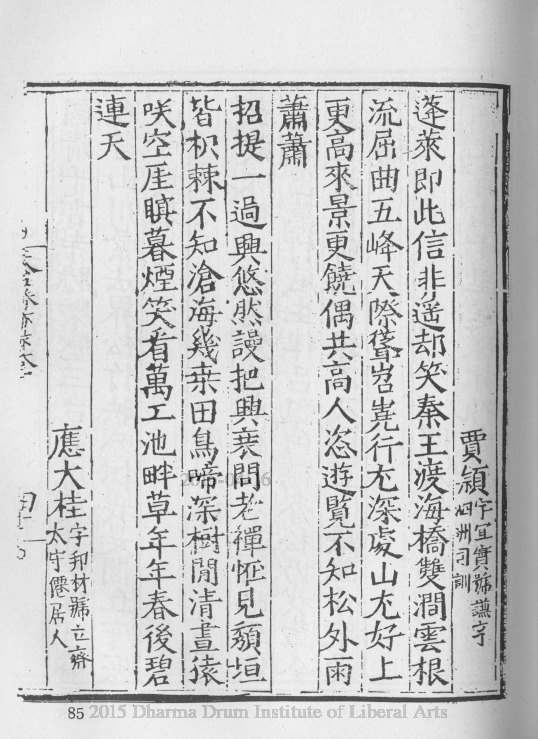 賈穎字宜實號謙亨
泗州司訓
蓬萊即此信非遥却笑秦王渡海橋雙澗雲根
流屈曲五峰天際聳岧嶤行尤深處山尤好上
更高來景更饒偶共高人恣遊覽不知松外雨
蕭蕭
招提一過興悠然謾把興衰問老禪恠見頽垣
皆枳棘不知滄海幾桒田鳥啼深樹閒清晝猿
咲空厓瞋暮煙笑看萬工池畔草年年春後碧
連天
應大桂字邦材號立齋
太守僊居人
85 2015 Dharma Drum Institute of Liberal Arts